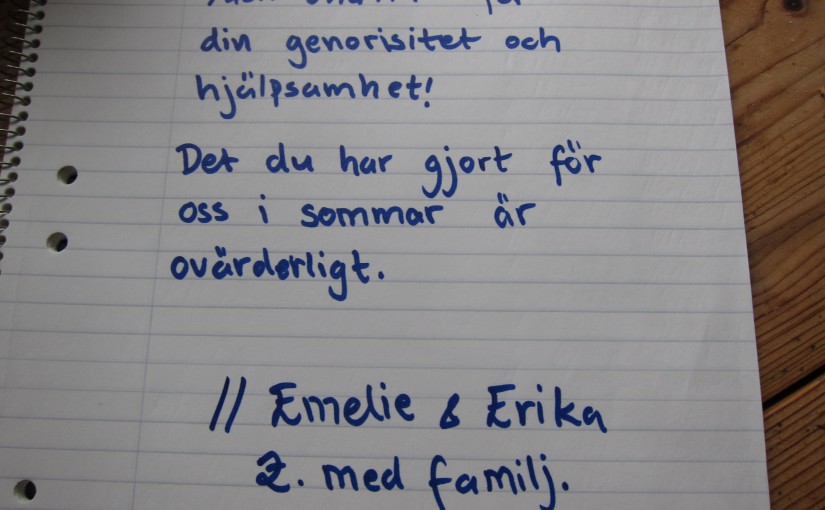 din genorisitet och
hjälpsamhet!
Det du har gjort för
oss i sommar är
ovärderligt.
// Emelie & Erika
Z. med familj.